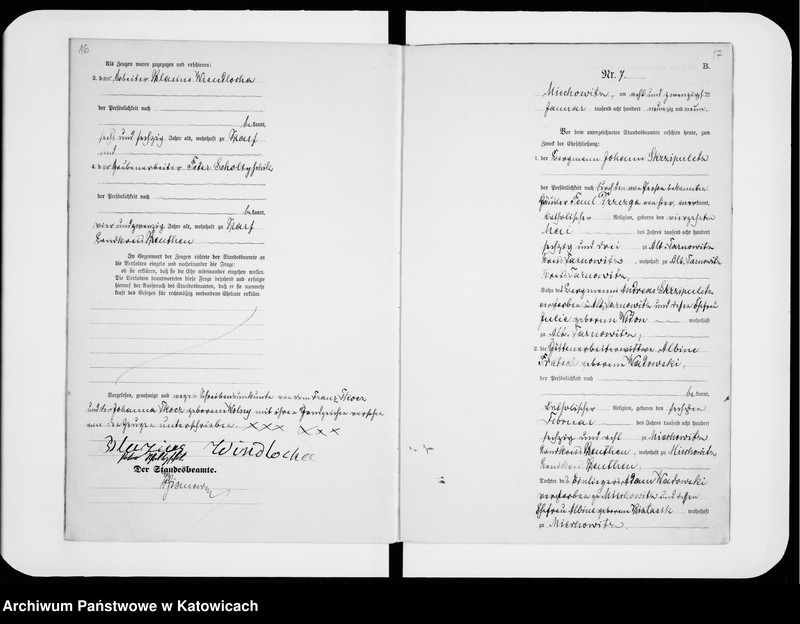 16
Als Zeugen waren zugezogen und erschienen:
3. der Arbeiter Blasius Windlocha
der Persönlichkeit nach
be kannt,
sechs und sechzig Jahre alt, wohnhaft zu Karf
und
4. der Grubenarbeiter Peter
der Persönlichkeit nach
be kannt,
vier und zwanzig Jahre alt, wohnhaft zu Karf
Landkreis Beuthen
In Gegenwart der Zeugen richtete der Standesbeamte an
die Verlobten einzeln und nacheinander die Frage:
ob sie erklären, daß sie die Ehe miteinander eingehen wollen.
Die Verlobten beantworteten diese Frage bejahend und erfolgte
hierauf der Ausspruch des Standesbeamten, daß er sie nunmehr
kraft des Gesetzes für rechtmäßig verbundene Eheleute erkläre.
Vorgelesen, genehmigt und wegen Schreibensunkunde von dem Franz Tkocz
und der Johanna Tkocz geborenen Wolny mit ihren Handzeichen versehen
von den Zeugen unterschrieben XXX XXX
Windlocha
Der Standesbeamte.
17
B.
Nr. 7.
Miechowitz, am acht und zwanzigsten
Januar tausend acht hundert neunzig und neun.
Vor dem unterzeichneten Standesbeamten erschien heute, zum
Zweck der Eheschließung:
1. der Bergmann Johann Skrzipuletz
der Persönlichkeit nach durch den von Person bekannten
Häusler Paul von hier, anerkannt,
katholischer Religion, geboren den vierzehnten
Mai des Jahres tausend acht hundert
sechzig und drei zu Alt-Tarnowitz
Kreis Tarnowitz, wohnhaft zu Alt-Tarnowitz
Kreis Tarnowitz,
Sohn des Bergmanns Andreas Skrzipuletz
verstorben zu Alt-Tarnowitz und dessen Ehefrau
Julie geborenen wohnhaft
zu Alt-Tarnowitz;
2. die Hüttenarbeiterwittwe Albine
geborene Wadowski,
der Persönlichkeit nach
be kannt,
katholischer Religion, geboren den sechsten
Februar des Jahres tausend acht hundert
sechzig und acht zu Miechowitz
Landkreis Beuthen, wohnhaft zu Miechowitz
Landkreis Beuthen,
Tochter des Einliegers Adam Wadowski
verstorben zu Miechowitz und dessen
Ehefrau Albine geborenen Bialassik wohnhaft
zu Miechowitz.
Archiwum Państwowe w Katowicach